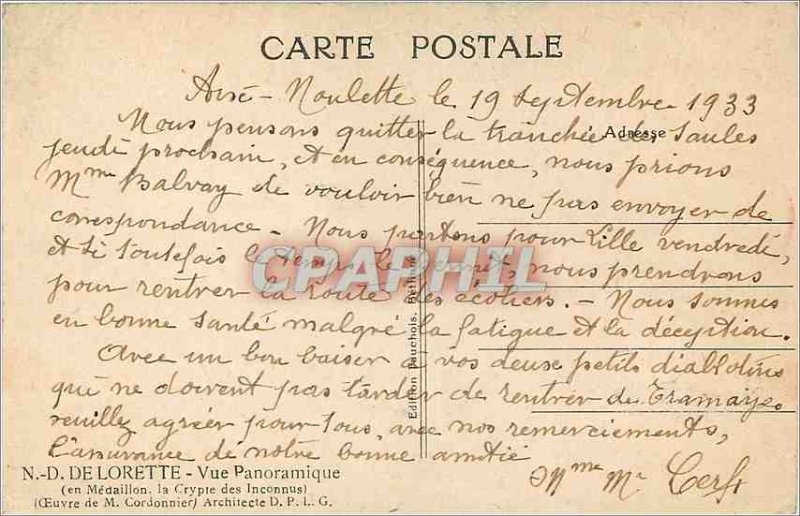 CARTE POSTALE
Aix-Noulette le 19 Septembre 1933
Nous pensons quitter la tranchée des Saules
Adresse
jeudi prochain, et en conséquence, nous prions
Mme Balvay de vouloir bien ne pas envoyer de
correspondance - Nous partons pour Lille vendredi,
et si toutefois le temps le permet, nous prendrons
pour rentrer la route des écoliers. - Nous sommes
en bonne santé malgré la fatigue et la déception.
Avec un bon baiser à vos deux petits diablotins
qui ne doivent pas tarder de rentrer de Tramayes
veuillez agréer pour tous, avec nos remerciements,
l'assurance de notre bonne amitié
Mme Mr Cerf
Edition Pauchois, Béthune
CPAPHIL
N.-D. DE LORETTE - Vue Panoramique
(en Médaillon, la Crypte des Inconnus)
(Œuvre de M. Cordonnier) Architecte D. P. L. G.